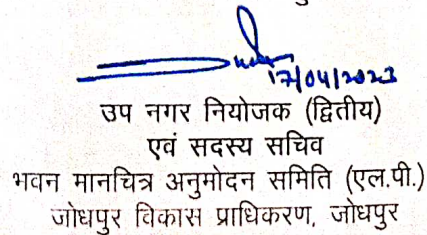 17/04/2023
उप नगर नियोजक (द्वितीय)
एवं सदस्य सचिव
भवन मानचित्र अनुमोदन समिति (एल.पी.)
जोधपुर विकास प्राधिकरण, जोधपुर